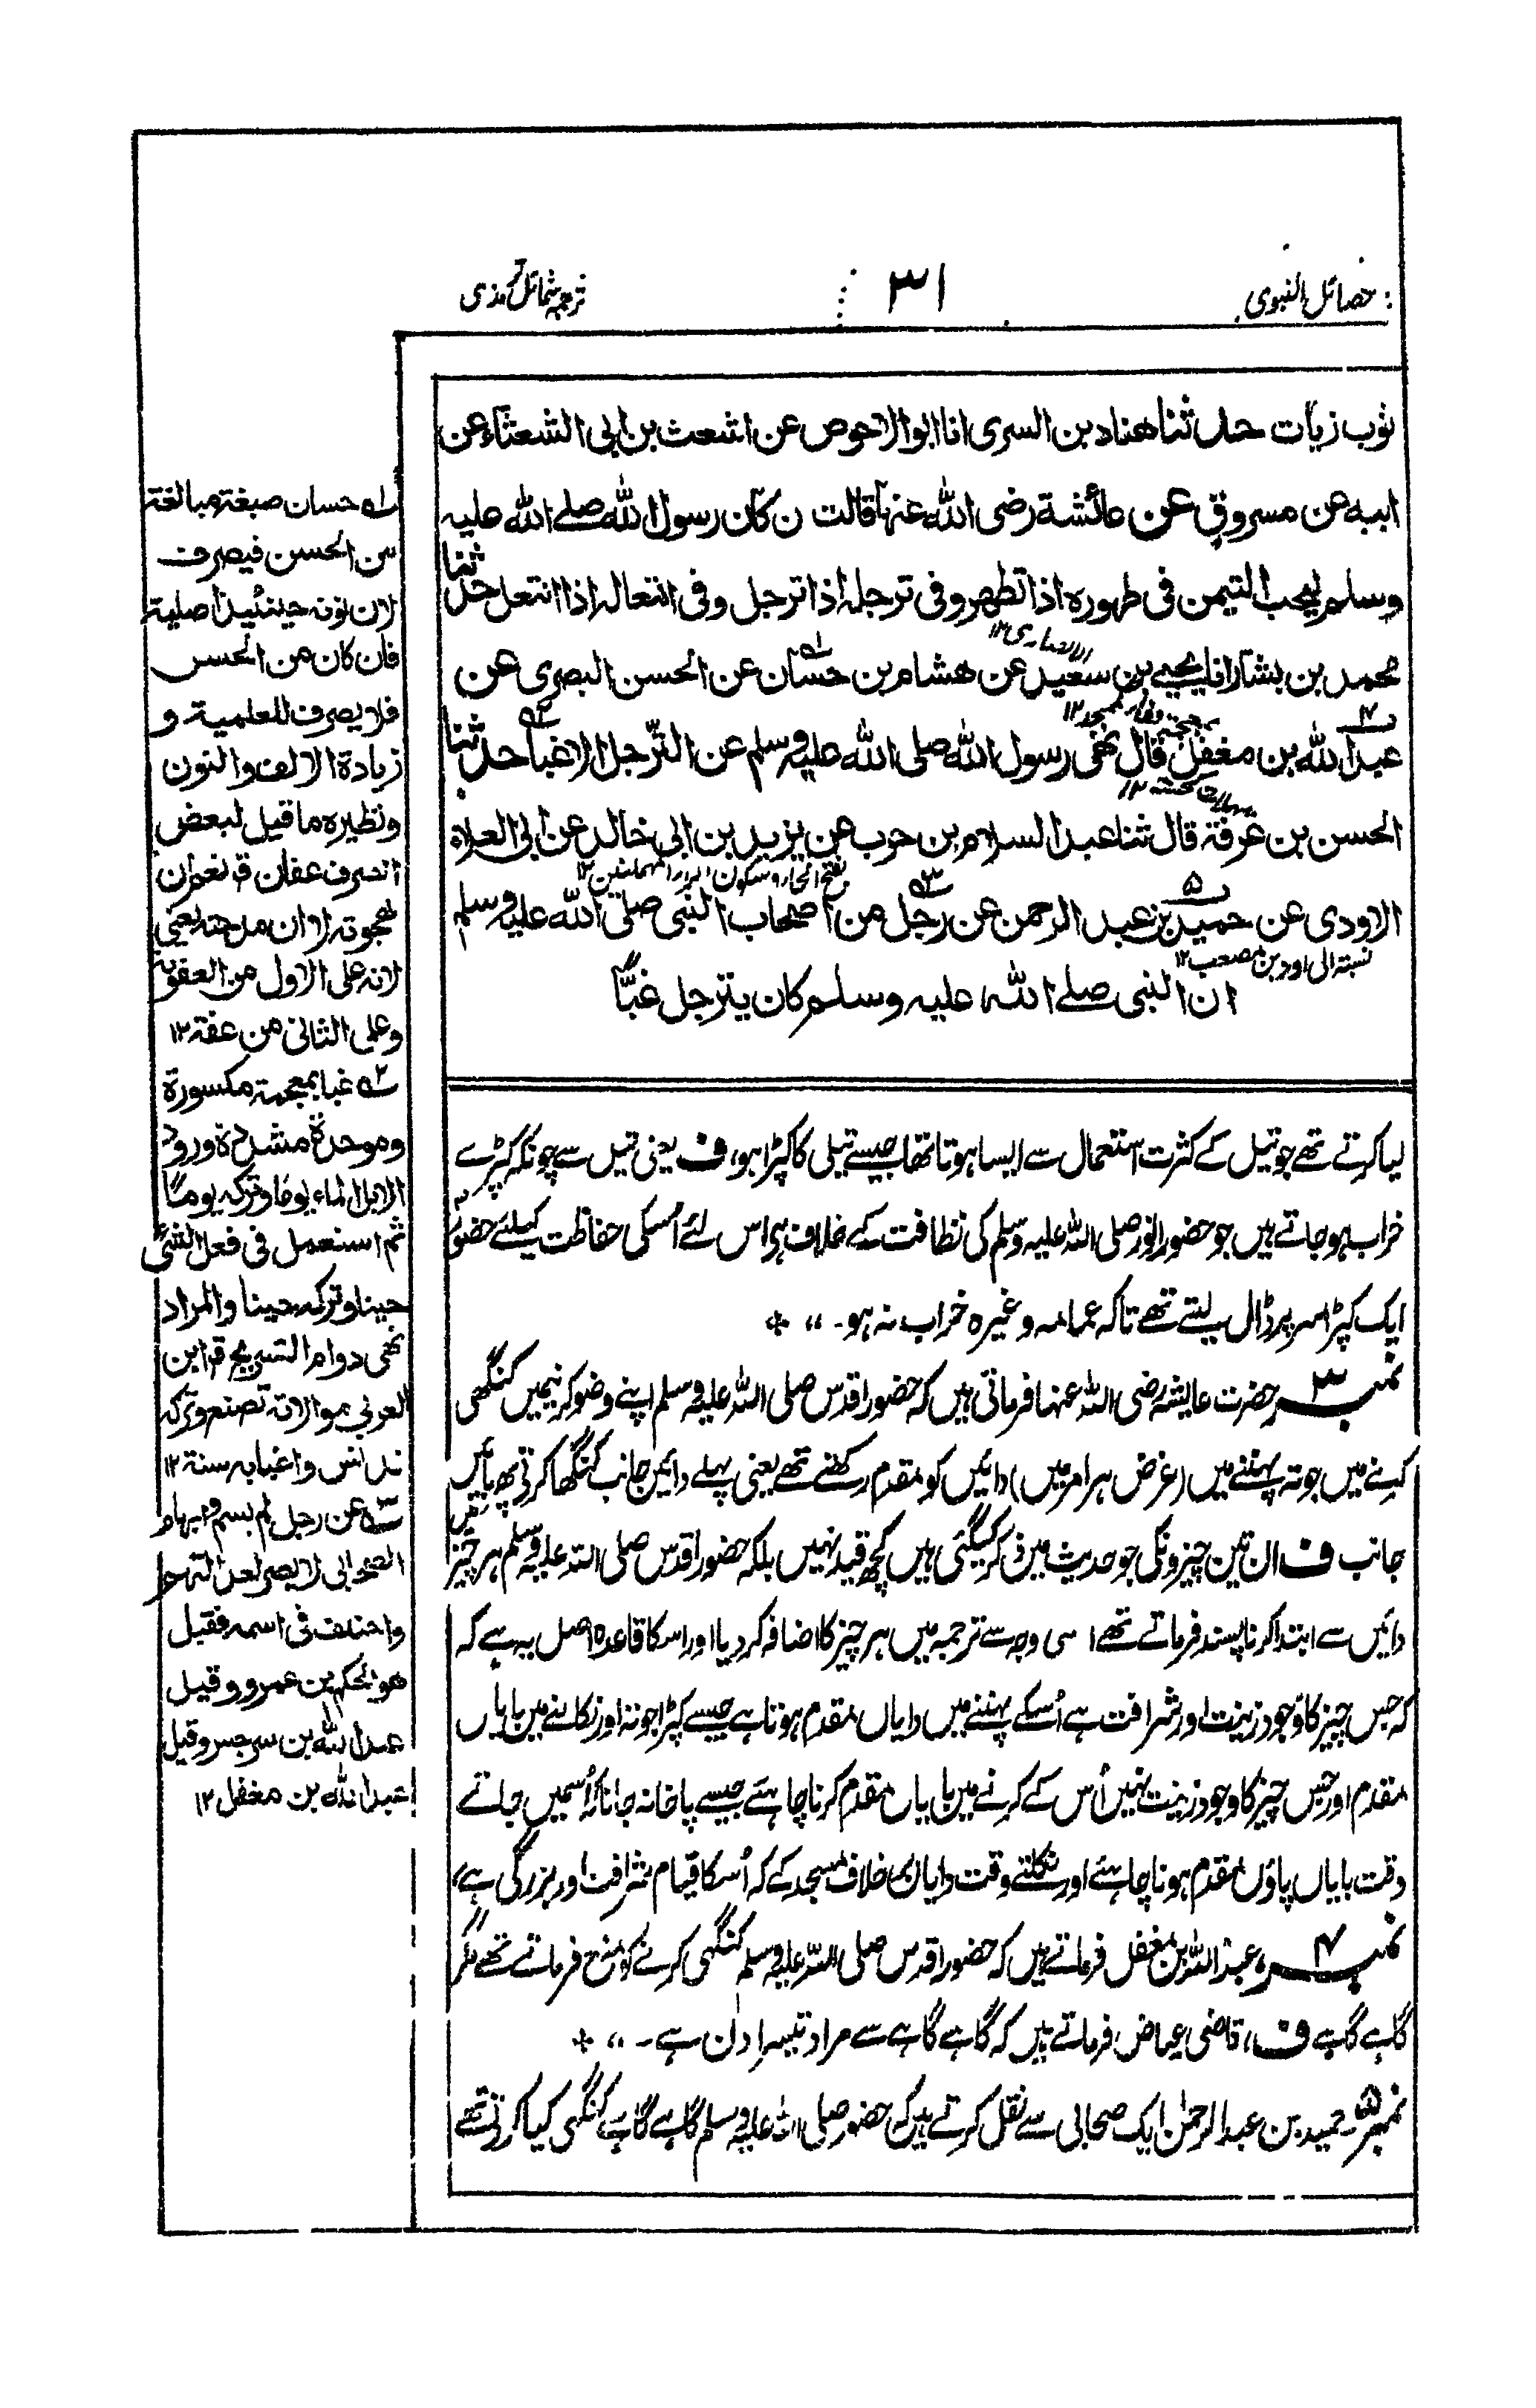 خصائل النبوی
۳۱
ترجمہ شمائل ترمذی
ثوب زیات حدثنا هناد بن السری انا ابو الاحوص عن اشعث بن ابی الشعثاء عن
ابیه عن مسروق عن عائشة رضی الله عنها قالت ن کان رسول الله صلے الله علیه
وسلم لیحب التیمن فی طهوره اذا تطهر و فی ترجله اذا ترجل و فی انتعاله اذا انتعل حدثنا
الانصاری ۱۲
محمد بن بشار انا یحیے بن سعید عن هشام بن حسان عن الحسن البصری عن
عبد الله بن مغفل قال نهی رسول الله صلی الله علیه وسلم عن الترجل الا غبا حدثنا
الحسن بن عرفة قال ثنا عبد السلام بن حرب عن یزید بن ابی خالد عن ابی العلاء
بفتح الحاء و سکون الراء المهملتین ۱۲
الاودی عن حمید بن عبد الرحمن عن رجل من اصحاب النبی صلی الله علیه وسلم
نسبة الی اود بن مصعب ۱۲
ان النبی صلے الله علیه وسلم کان یترجل غبًّا
لیا کرتے تھے جو تیل کے کثرت استعمال سے ایسا ہوتا تھا جیسے تیلی کا کپڑا ہو، ف یعنی تیل سے چونکہ کپڑے
خراب ہو جاتے ہیں جو حضور انور صلی اللہ علیہ وسلم کی نظافت کے خلاف ہے اس لئے اُسکی حفاظت کیلئے حضور
ایک کپڑا سر پر ڈال لیتے تھے تاکہ عمامہ وغیرہ خراب نہ ہو۔
نمبر ۳ حضرت عایشہ رضی اللہ عنہا فرماتی ہیں کہ حضور اقدس صلی اللہ علیہ وسلم اپنے وضو کرنیمیں کنگھی
کرنے میں جوتہ پہننے میں (غرض ہر امر میں) دائیں کو مقدم رکھتے تھے یعنی پہلے دائیں جانب کنگھا کرتے پھر بائیں
جانب ف ان تین چیزونکی جو حدیث میں ذکر کیگئی ہیں کچھ قید نہیں بلکہ حضور اقدس صلی اللہ علیہ وسلم ہر چیز
دائیں سے ابتدا کرنا پسند فرماتے تھے اسی وجہ سے ترجمہ میں ہر چیز کا اضافہ کر دیا اور اسکا قاعدہ اصل یہ ہے کہ
کہ جس چیز کا وجود زینت اور شرافت ہے اُسکے پہننے میں دایاں مقدم ہوتا ہے جیسے کپڑا جوتہ اور نکالنے میں بایاں
مقدم اور جس چیز کا وجود زینت نہیں اُس کے کرنے میں بایاں مقدم کرنا چاہئے جیسے پاخانہ جانا کہ اُسمیں جاتے
وقت بایاں پاؤں مقدم ہونا چاہئے اور نکلتے وقت دایاں بخلاف مسجد کے کہ اُسکا قیام شرافت اور بزرگی ہے،
نمبر ۴ عبد اللہ بن مغفل فرماتے ہیں کہ حضور اقدس صلی اللہ علیہ وسلم کنگھی کرنے کو منع فرماتے تھے مگر
گاہے گاہے ف، قاضی عیاض فرماتے ہیں کہ گاہے گاہے سے مراد تیسرا دن ہے۔
نمبر ۵ حمید بن عبد الرحمٰن ایک صحابی سے نقل کرتے ہیں کہ حضور صلی اللہ علیہ وسلم گاہے گاہے کنگھی کیا کرتے تھے
۱ه حسان صیغة مبالغة
من الحسن فیصرف
لان نونه حینئیذ اصلیة
فان کان من الحس
فلا یصرف للعلمیة و
زیادة الالف والنون
ونظیره ما قیل لبعض
اتصرف عفان قال نعم ان
هجوته لا ان مدحته یعنی
لانه علی الاول من العفونة
و علی الثانی من عفة ۱۲
۲ه غبا بمعجمة مکسورة
وموحدة مشددة ورود
الابل الماء یوما وترکه یوما
ثم استعمل فی فعل الشئ
حینا وترکه حینا والمراد
نهی دوام التسریح قال ابن
العربی موالاته تصنع وترکه
تدلس واغبابه سنة ۱۲
۳ه عن رجل لم یسم وابهام
الصحابی لا یضر
واختلف فی اسمه فقیل
هو الحکم بن عمرو وقیل
عبد الله بن سرجس وقیل
عبد الله بن مغفل ۱۲